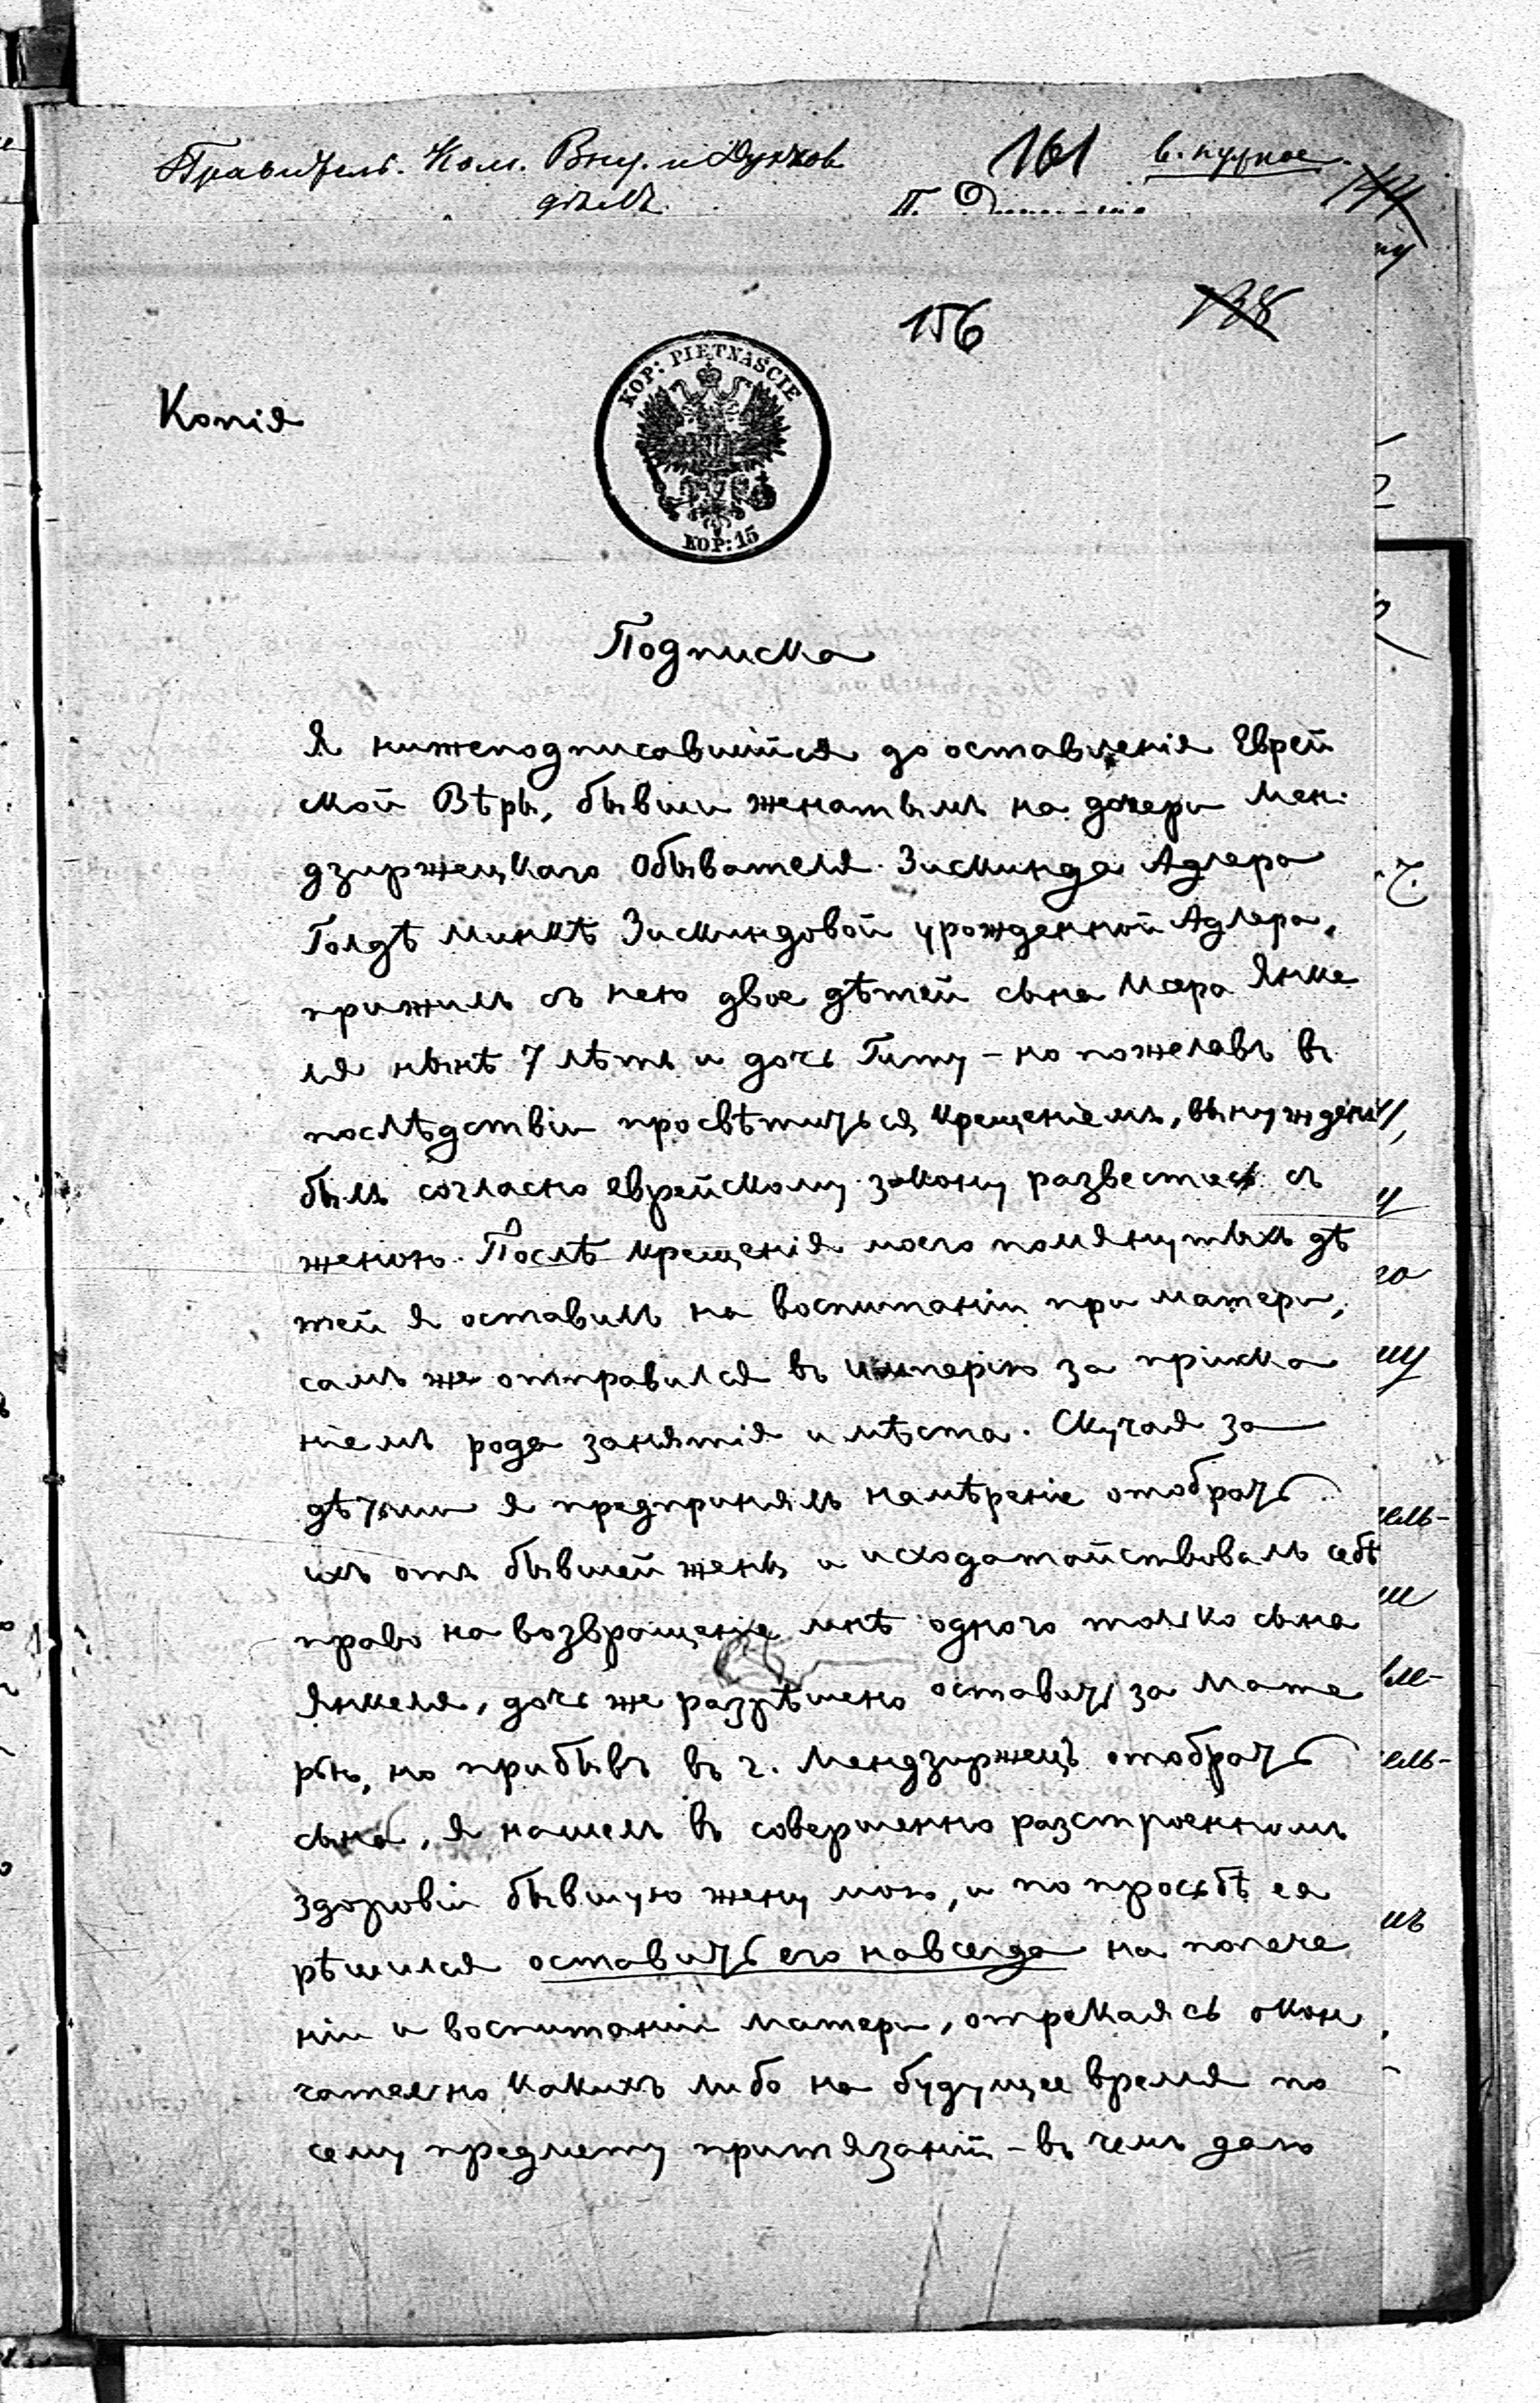 Правитель. Ком. Вну. и Духов
дѣлъ.
161
в. нужное.
144
П.
156
138
KOP: PIĘTNAŚCIE
KOP: 15
Копія
Подписка
Я нижеподписавшійся до оставленія Еврей
ской Вѣры, бывши женатымъ на дочери Мен-
дзиржецкаго Обывателя Зискинда Адлера
Голдѣ Минкѣ Зискиндовой урожденной Адлера,
прижилъ съ нею двое дѣтей сына Мера Янке
ля нынѣ 7 лѣтъ и дочь Гиту – но пожелавъ в
послѣдствіи просвѣтиться крещеніемъ, вынужденъ
былъ согласно еврейскому закону развестись съ
женою. Послѣ крещенія моего помянутыхъ дѣ
тей я оставилъ на воспитаніи при матери,
самъ же отправился въ Имперію за пріиска
ніемъ рода занятія и мѣста. Скучая за
дѣтьми я предпринялъ намѣреніе отобрать
ихъ отъ бывшей жены и исходатайствовалъ себѣ
право на возвращеніе мнѣ одного только сына
Янкеля, дочь же разрѣшено оставить за мате
рью, но прибывъ въ г. Мендзиржецъ отобрать
сына, я нашелъ въ совершенно разстроенномъ
здоровіи бывшую жену мою, и по просьбѣ ея
рѣшился оставить его навсегда на попече
ніи и воспитаніи матери, отрекаясь окон
чательно какихъ либо на будущее время по
сему предмету притязаній – въ чемъ даю